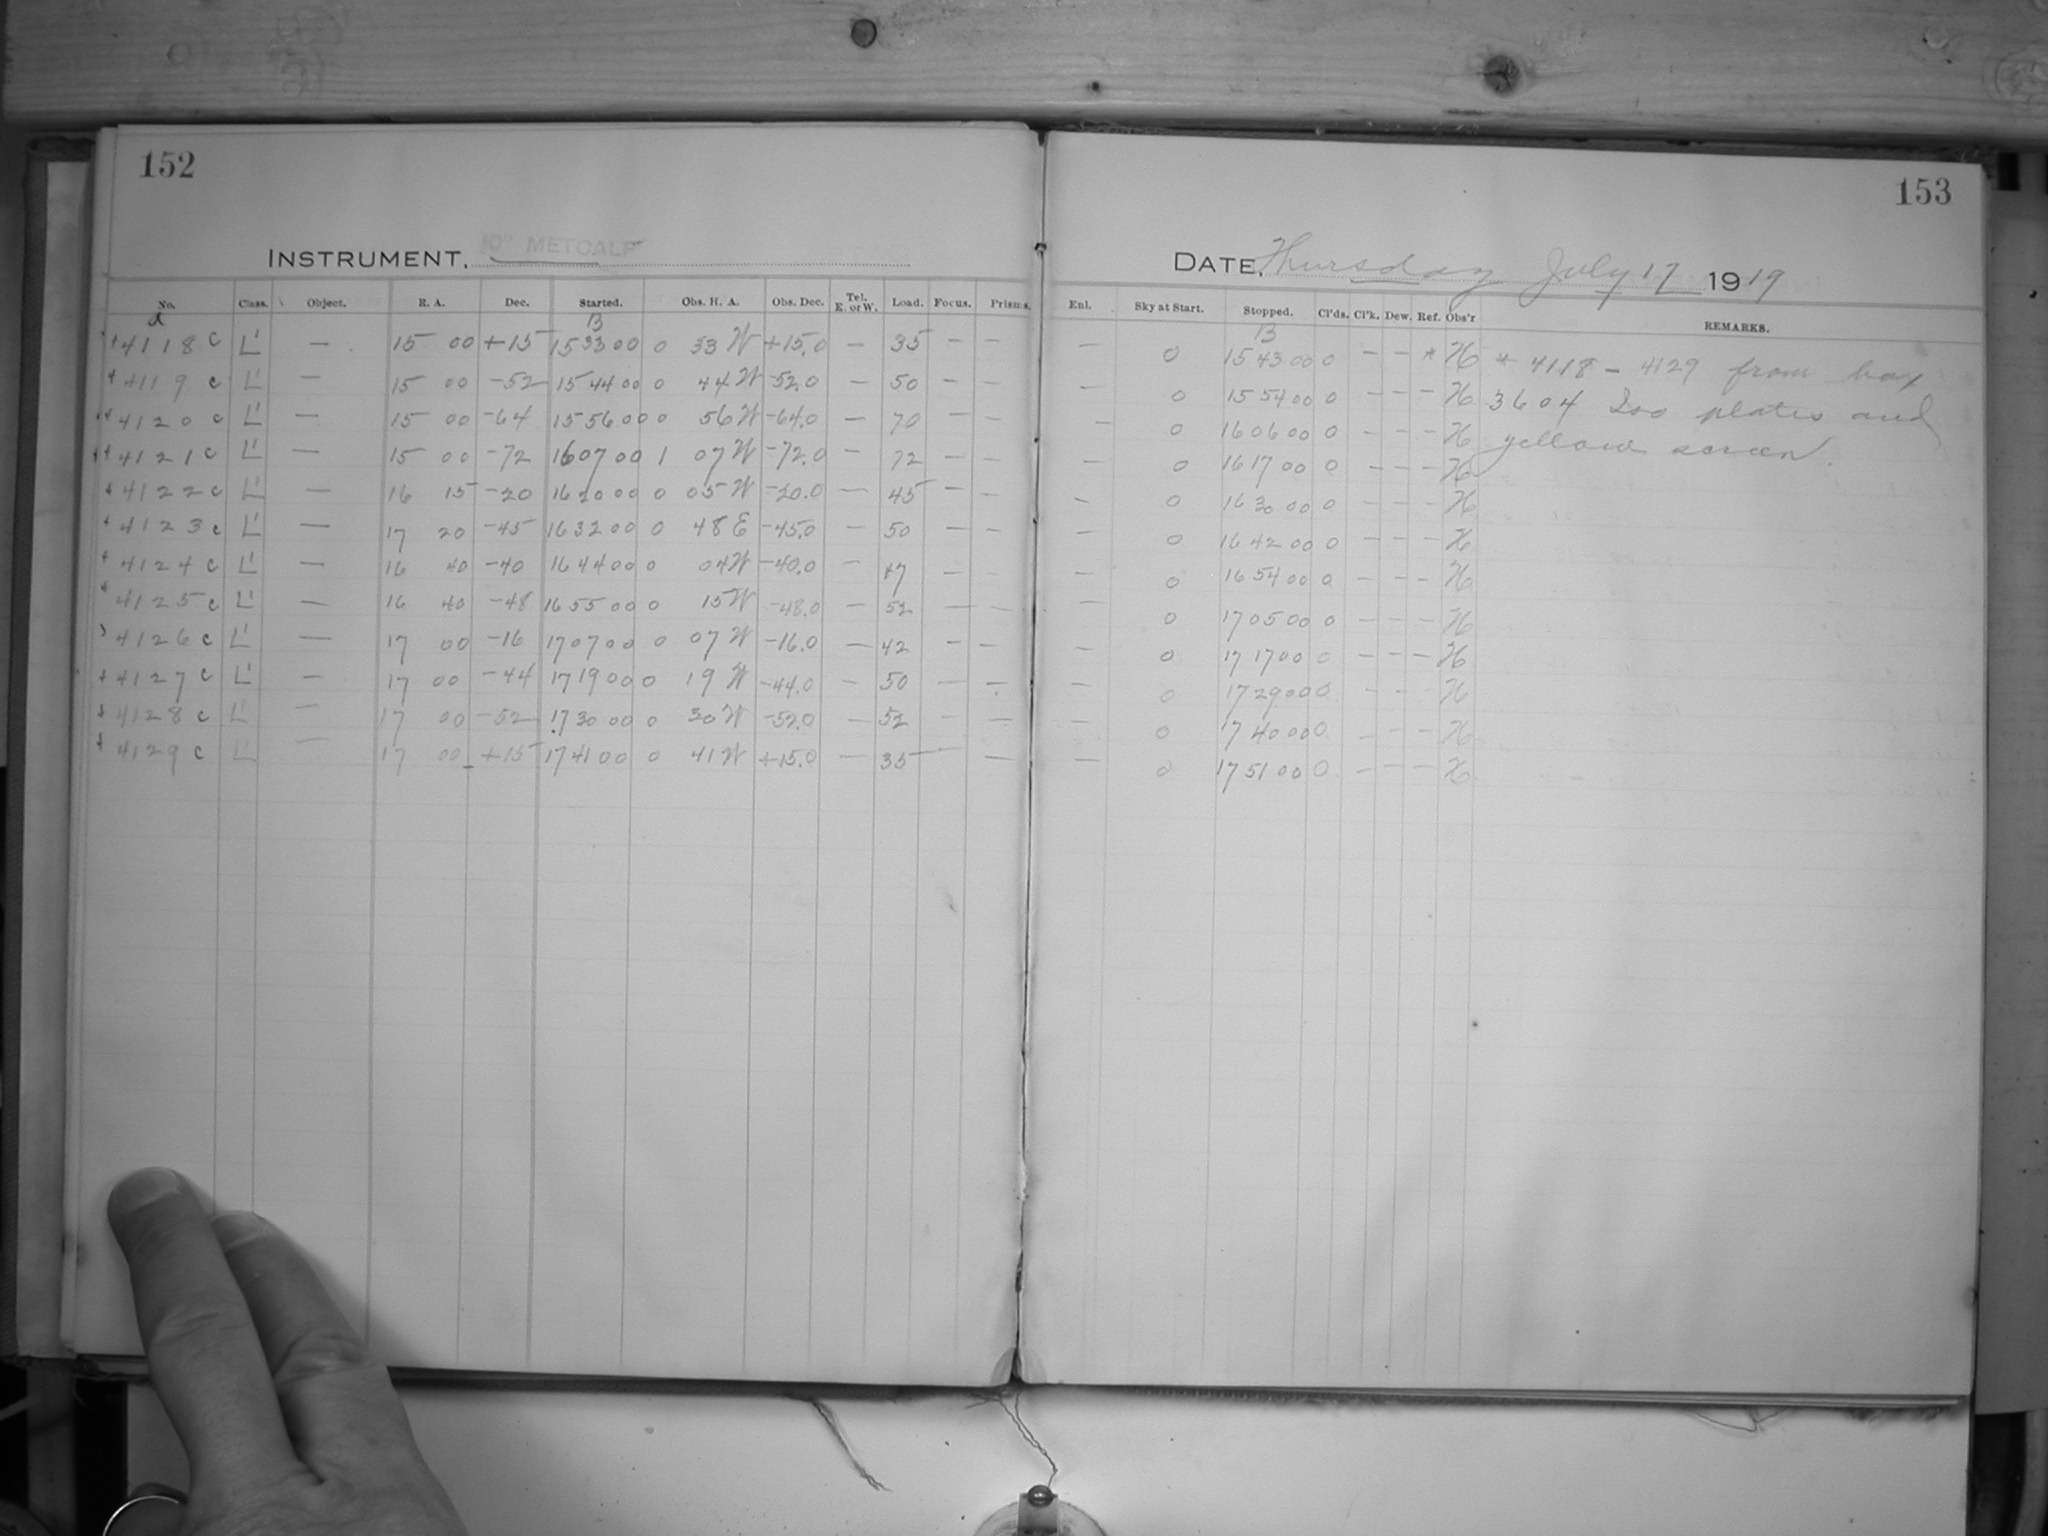 152
153
INSTRUMENT, 10" METCALF
DATE, Thursday July 17 1919
No. Class. Object. R. A. Dec. Started. Obs. H. A. Obs. Dec. Tel. E. or W. Load. Focus. Prisms. Enl. Sky at Start. Stopped. Cl'ds. Cl'k. Dew. Ref. Obs'r REMARKS.
a B B
4118 c L' — 15 00 +15 15 33 00 0 33 W +15.0 — 35 — — — 0 15 43 00 0 — — * H * 4118 - 4129 from box
4119 c L' — 15 00 -52 15 44 00 0 44 W -52.0 — 50 — — — 0 15 54 00 0 — — — H 3604 Iso plates and
4120 c L' — 15 00 -64 15 56 00 0 56 W -64.0 — 70 — — — 0 16 06 00 0 — — — H yellow screen.
4121 c L' — 15 00 -72 16 07 00 1 07 W -72.0 — 72 — — — 0 16 17 00 0 — — — H
4122 c L' — 16 15 -20 16 20 00 0 05 W -20.0 — 45 — — — 0 16 30 00 0 — — — H
4123 c L' — 17 20 -45 16 32 00 0 48 E -45.0 — 50 — — — 0 16 42 00 0 — — — H
4124 c L' — 16 40 -40 16 44 00 0 04 W -40.0 — 47 — — — 0 16 54 00 0 — — — H
4125 c L' — 16 40 -48 16 55 00 0 15 W -48.0 — 52 — — — 0 17 05 00 0 — — — H
4126 c L' — 17 00 -16 17 07 00 0 07 W -16.0 — 42 — — — 0 17 17 00 0 — — — H
4127 c L' — 17 00 -44 17 19 00 0 19 W -44.0 — 50 — — — 0 17 29 00 0 — — — H
4128 c L' — 17 00 -52 17 30 00 0 30 W -52.0 — 52 — — — 0 17 40 00 0 — — — H
4129 c L' — 17 00 +15 17 41 00 0 41 W +15.0 — 35 — — — 0 17 51 00 0 — — — H